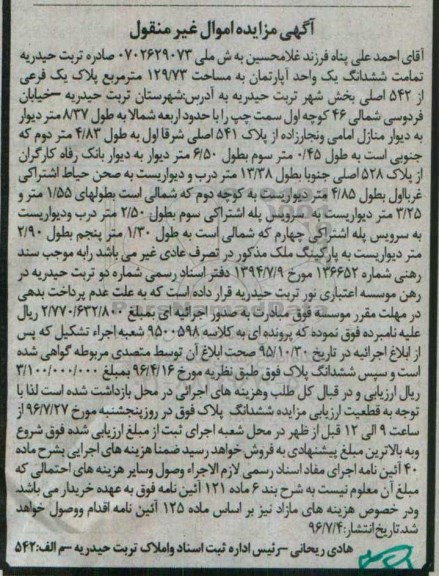 آگهی مزایده اموال غیر منقول
آقای احمد علی پناه فرزند غلامحسین به ش ملی ۰۷۰۲۶۲۹۰۷۳ صادره تربت حیدریه
تمامت ششدانگ یک واحد آپارتمان به مساحت ۱۲۹/۷۳ مترمربع پلاک یک فرعی
از ۵۴۲ اصلی بخش شهر تربت حیدریه به آدرس:شهرستان تربت حیدریه -خیابان
فردوسی شمالی ۴۶ کوچه اول سمت چپ را با حدود اربعه شمالا به طول ۸/۳۷ متر دیوار
به دیوار منازل امامی ونجارزاده از پلاک ۵۴۱ اصلی شرقا اول به طول ۴/۸۳ متر دوم که
جنوبی است به طول ۰/۴۵ متر سوم بطول ۶/۵۰ متر دیوار به دیوار بانک رفاه کارگران
از پلاک ۵۲۸ اصلی جنوبا بطول ۱۳/۳۸ متر درب و دیواریست به صحن حیاط اشتراکی
غربااول بطول ۴/۸۵ متر دیواریست به کوچه دوم که شمالی است بطولهای ۱/۵۵ متر و
۳/۲۵ متر دیواریست به سرویس پله اشتراکی سوم بطول ۲/۵۰ متر درب ودیواریست
به سرویس پله اشتراکی چهارم که شمالی است به طول ۱/۳۰ متر پنجم بطول ۲/۹۰
متر دیواریست به پارکینگ ملک مذکور در تصرف عادی غیر می باشد رابه موجب سند
رهنی شماره ۱۳۶۶۵۲ مورخ ۱۳۹۴/۷/۹ دفتر اسناد رسمی شماره دو تربت حیدریه در
رهن موسسه اعتباری نور تربت حیدریه قرار داده است که به علت عدم پرداخت بدهی
در مهلت مقرر موسسه فوق مبادرت به صدور اجرائیه ای بمبلغ ۲/۷۷۰/۶۳۲/۸۰۰ ریال
علیه نامبرده فوق نموده که پرونده ای به کلاسه ۹۵۰۰۵۹۸ شعبه اجراء تشکیل که پس
از ابلاغ اجرائیه در تاریخ ۹۵/۱۰/۳۰ صحت ابلاغ آن توسط متصدی مربوطه گواهی شده
است و سپس ششدانگ پلاک فوق طبق نظریه مورخ ۹۶/۴/۱۶ بمبلغ ۳/۱۰۰/۰۰۰/۰۰۰
ریال ارزیابی و در قبال کل طلب وهزینه های اجرائی در محل بازداشت شده است لذا با
توجه به قطعیت ارزیابی مزایده ششدانگ پلاک فوق در روزپنجشنبه مورخ ۹۶/۷/۲۷ از
ساعت ۹ الی ۱۲ قبل از ظهر در محل شعبه اجرای ثبت از مبلغ ارزیابی شده فوق شروع
وبه بالاترین مبلغ پیشنهادی به فروش خواهد رسید ضمنا هزینه های اجرایی بشرح ماده
۴۰ آئین نامه اجرای مفاد اسناد رسمی لازم الاجراء وصول وسایر هزینه های احتمالی که
مبلغ آن معلوم نیست به شرح بند ۶ ماده ۱۲۱ آئین نامه فوق به عهده خریدار می باشد
ودر خصوص هزینه های مازاد نیز بر اساس ماده ۱۲۵ آئین نامه اقدام ووصول خواهد
شد.تاریخ انتشار:۹۶/۷/۴
هادی ریحانی -رئیس اداره ثبت اسناد واملاک تربت حیدریه -م الف:۵۴۲